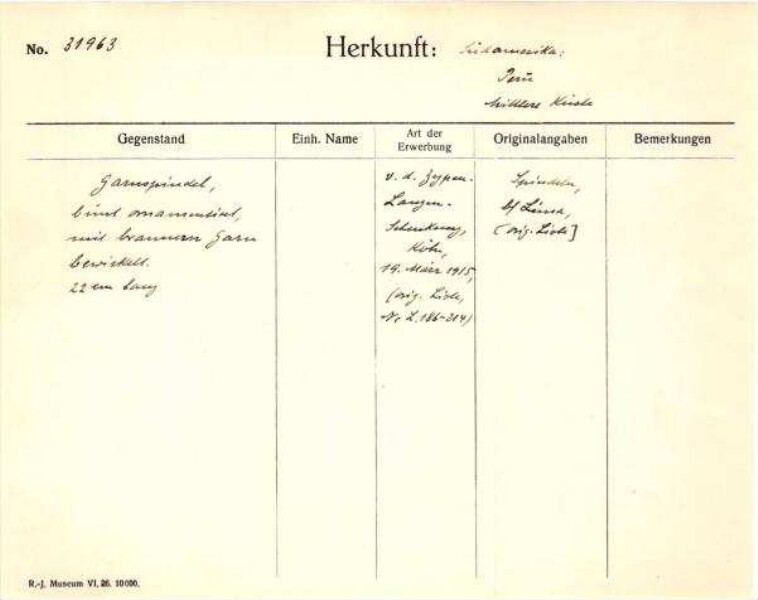 No. 31963
Herkunft: Südamerika:
Peru
Mittlere Küste
Gegenstand
Einh. Name
Art der
Erwerbung
Originalangaben
Bemerkungen
Garnspindel,
bunt ornamentiert,
mit braunem Garn
bewickelt.
22 cm lang
v. d. Zypen-
Langen-
Schenkung,
Köln,
19. März 1915,
(orig. Liste,
N. L. 186-214)
Spindeln,
b/ Lima,
[orig. Liste]
R.-J. Museum VI, 26. 10000.